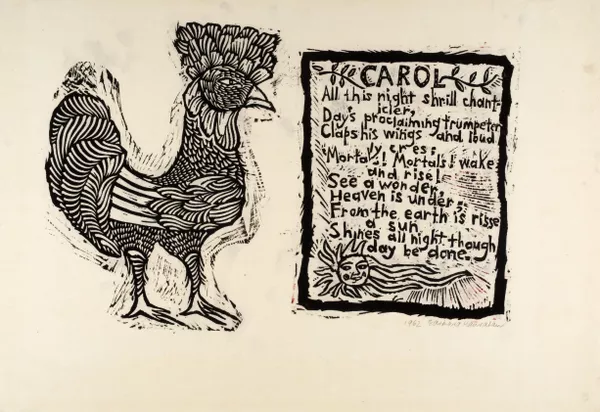 CAROL
All this night shrill chant-
icler,
Day's proclaiming trumpeter
Claps his wings and loud
ly cres:
"Mortals! Mortals! wake
and rise!
See a wonder,
Heaven is under:
From the earth is risse
a sun
Shines all night though
day be done."
1962